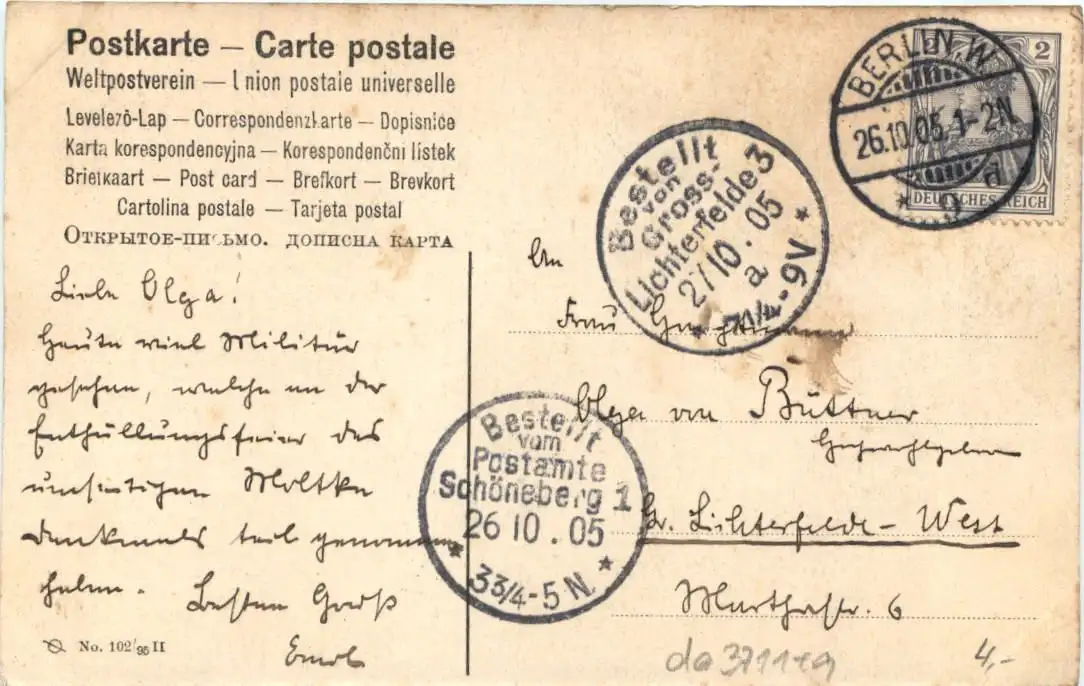 Postkarte — Carte postale
Weltpostverein — Union postale universelle
Levelező-Lap — Correspondenzkarte — Dopisnice
Karta korespondencyjna — Korespondenční lístek
Briefkaart — Post card — Brefkort — Brevkort
Cartolina postale — Tarjeta postal
Открытое-письмо. дописна карта
BERLIN. W
26.10.05. 1-2N
* 9 d
2 2
DEUTSCHES REICH
Bestellt
von
Gross-
Lichterfelde 3
27/10.05
a
* 7 1/4-9V *
Liebe Olga!
Heute viel Militär
gesehen, welche an der
Enthüllungsfeier des
Moltke
denkmals teil genommen
haben. Besten Gruß
An
Frau
Olga von Büttner
Hochwohlgeboren
Gr. Lichterfelde-West
Marthastr. 6
Bestellt
vom
Postamte
Schöneberg 1
26 10.05
* 3 3/4-5 N. *
No. 102/95 II
4,-